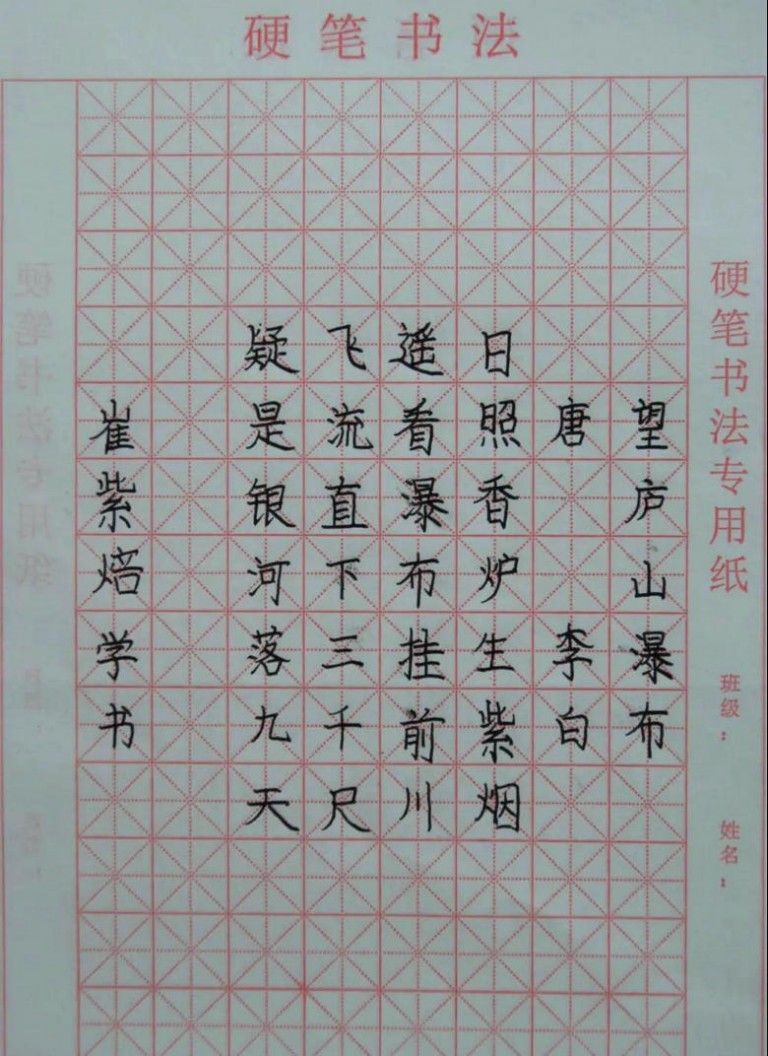 硬笔书法
望庐山瀑布
唐 李白
日照香炉生紫烟
遥看瀑布挂前川
飞流直下三千尺
疑是银河落九天
崔紫焙学书
硬笔书法专用纸
班级：
姓名：
硬笔书法专用纸